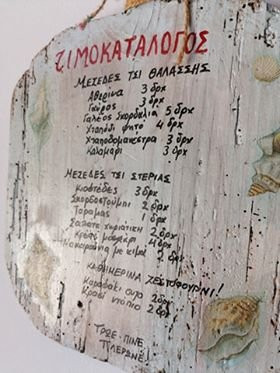 ΤΙΜΟΚΑΤΑΛΟΓΟΣ
ΜΕΖΕΔΕΣ ΤΣΙ ΘΑΛΑΣΣΗΣ
Αθερίνα 3 δρχ
Γαύρος 3 δρχ
Γαλέος Σκορδαλιά 5 δρχ
Χταπόδι ψητό 4 δρχ
Χταποδομακέτρα 3 δρχ
Καλαμάρι 3 δρχ
ΜΕΖΕΔΕΣ ΤΣΙ ΣΤΕΡΙΑΣ
Κιοφτέδες 3 δρχ
Σκορδοστούμπι 2 δρχ
Ταραμάς 1 δρχ
Σαλάτα χωριάτικη 2 δρχ
Κρέας 4 δρχ
Μακαρούνια με κιμά 2 δρχ
ΚΑΘΗΜΕΡΙΝΑ ΖΕΣΤΟΨΟΥΝΙ!
Καραφάκι ούζο 2δρχ
Κρασί ντόπιο 2 δρχ
ΤΡΩΕ-ΠΙΝΕ
ΠΛΕΡΩΝΕ!